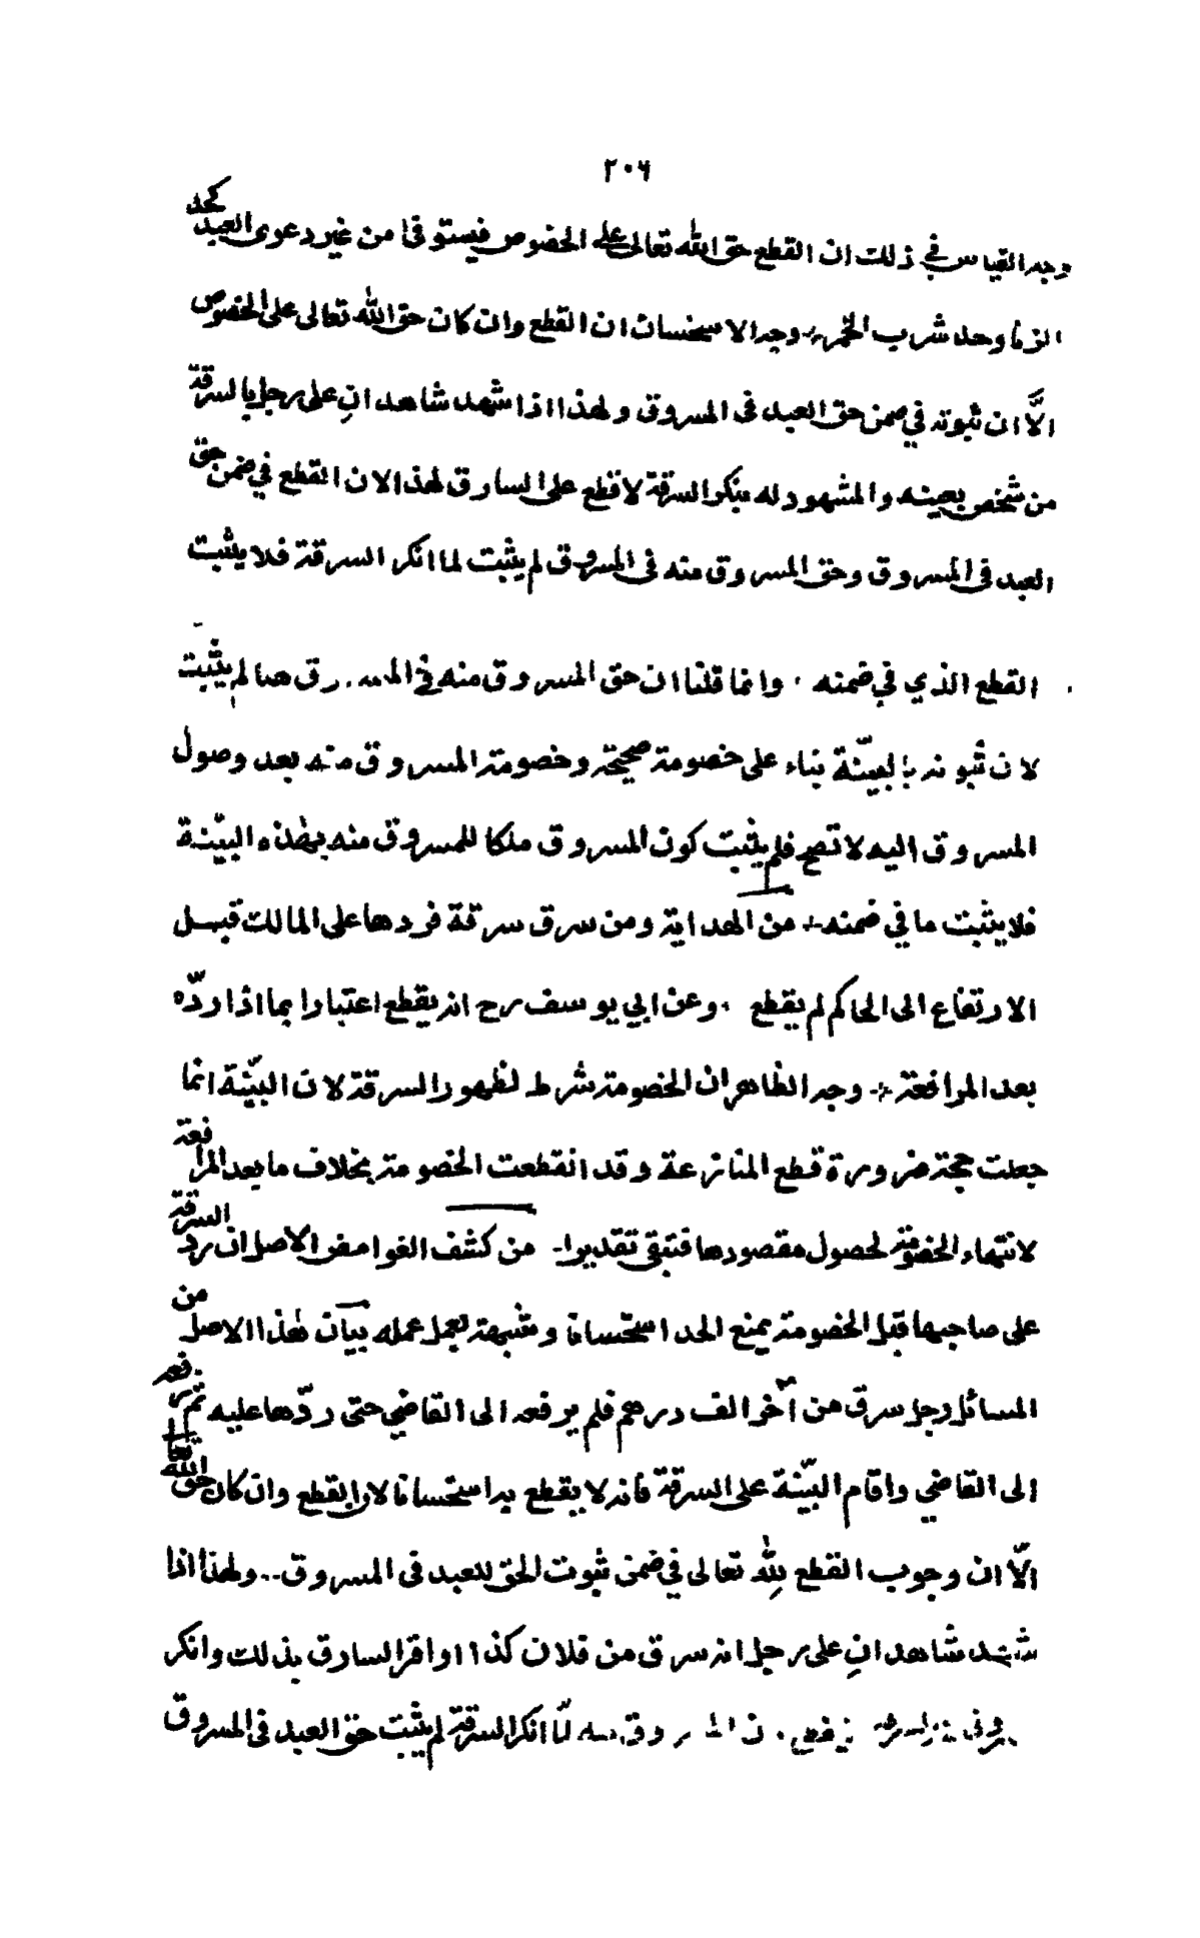 ٢٠٦
وجه القياس في ذلك ان القطع حق الله تعالى على الخصوص فيستوفى من غير دعوى العبد كحد
الزنا وحد شرب الخمر وجه الاستحسان ان القطع وان كان حق الله تعالى على الخصوص
الّا ان ثبوته في ضمن حق العبد فى المسروق ولهذا اذا شهد شاهدانِ على رجل بالسرقة
من شخص بعينه والمشهود له ينكر السرقة لا قطع على السارق لهذا لان القطع في ضمن حق
العبد فى المسروق وحق المسروق منه فى المسروق لم يثبت لما انكر السرقة فلا يثبت
القطع الذي في ضمنه . وانما قلنا ان حق المسروق منه في المسروق هنا لم يثبت
لان ثبوته بالبيّنة بناء على خصومة صحيحة وخصومة المسروق منه بعد وصول
المسروق اليه لا تصح فلم يثبت كون المسروق ملكا للمسروق منه بهذه البيّنة
فلا يثبت ما في ضمنه من الهداية ومن سرق سرقة فردها على المالك قبل
الارتفاع الى الحاكم لم يقطع . وعن ابي يوسف رح انه يقطع اعتبارا بما اذا ردّه
بعد المرافعة وجه الظاهر ان الخصومة شرط لظهور السرقة لان البيّنة انما
جعلت حجة ضرورة قطع المنازعة وقد انقطعت الخصومة بخلاف ما بعد المرافعة
لانتهاء الخصومة لحصول مقصودها فتبقى تقديرا من كشف الغوامض الاصل ان ردّ السرقة
على صاحبها قبل الخصومة يمنع الحد استحسانا وشبهة تعمل عمله بيان هذا الاصل من
المسائل رجل سرق من آخر الف درهم فلم يرفعه الى القاضي حتى ردّها عليه ثم رفعه
الى القاضي واقام البيّنة على السرقة فانه لا يقطع يده استحسانا لان القطع وان كان حق الله تعا
الّا ان وجوب القطع لله تعالى في ضمن ثبوت الحق للعبد فى المسروق .. ولهذا اذا
شهد شاهدانِ على رجل انه سرق من فلان كذا او اقر السارق بذلك وانكر
المسروق لمّا انكر السرقة لم يثبت حق العبد فى المسروق